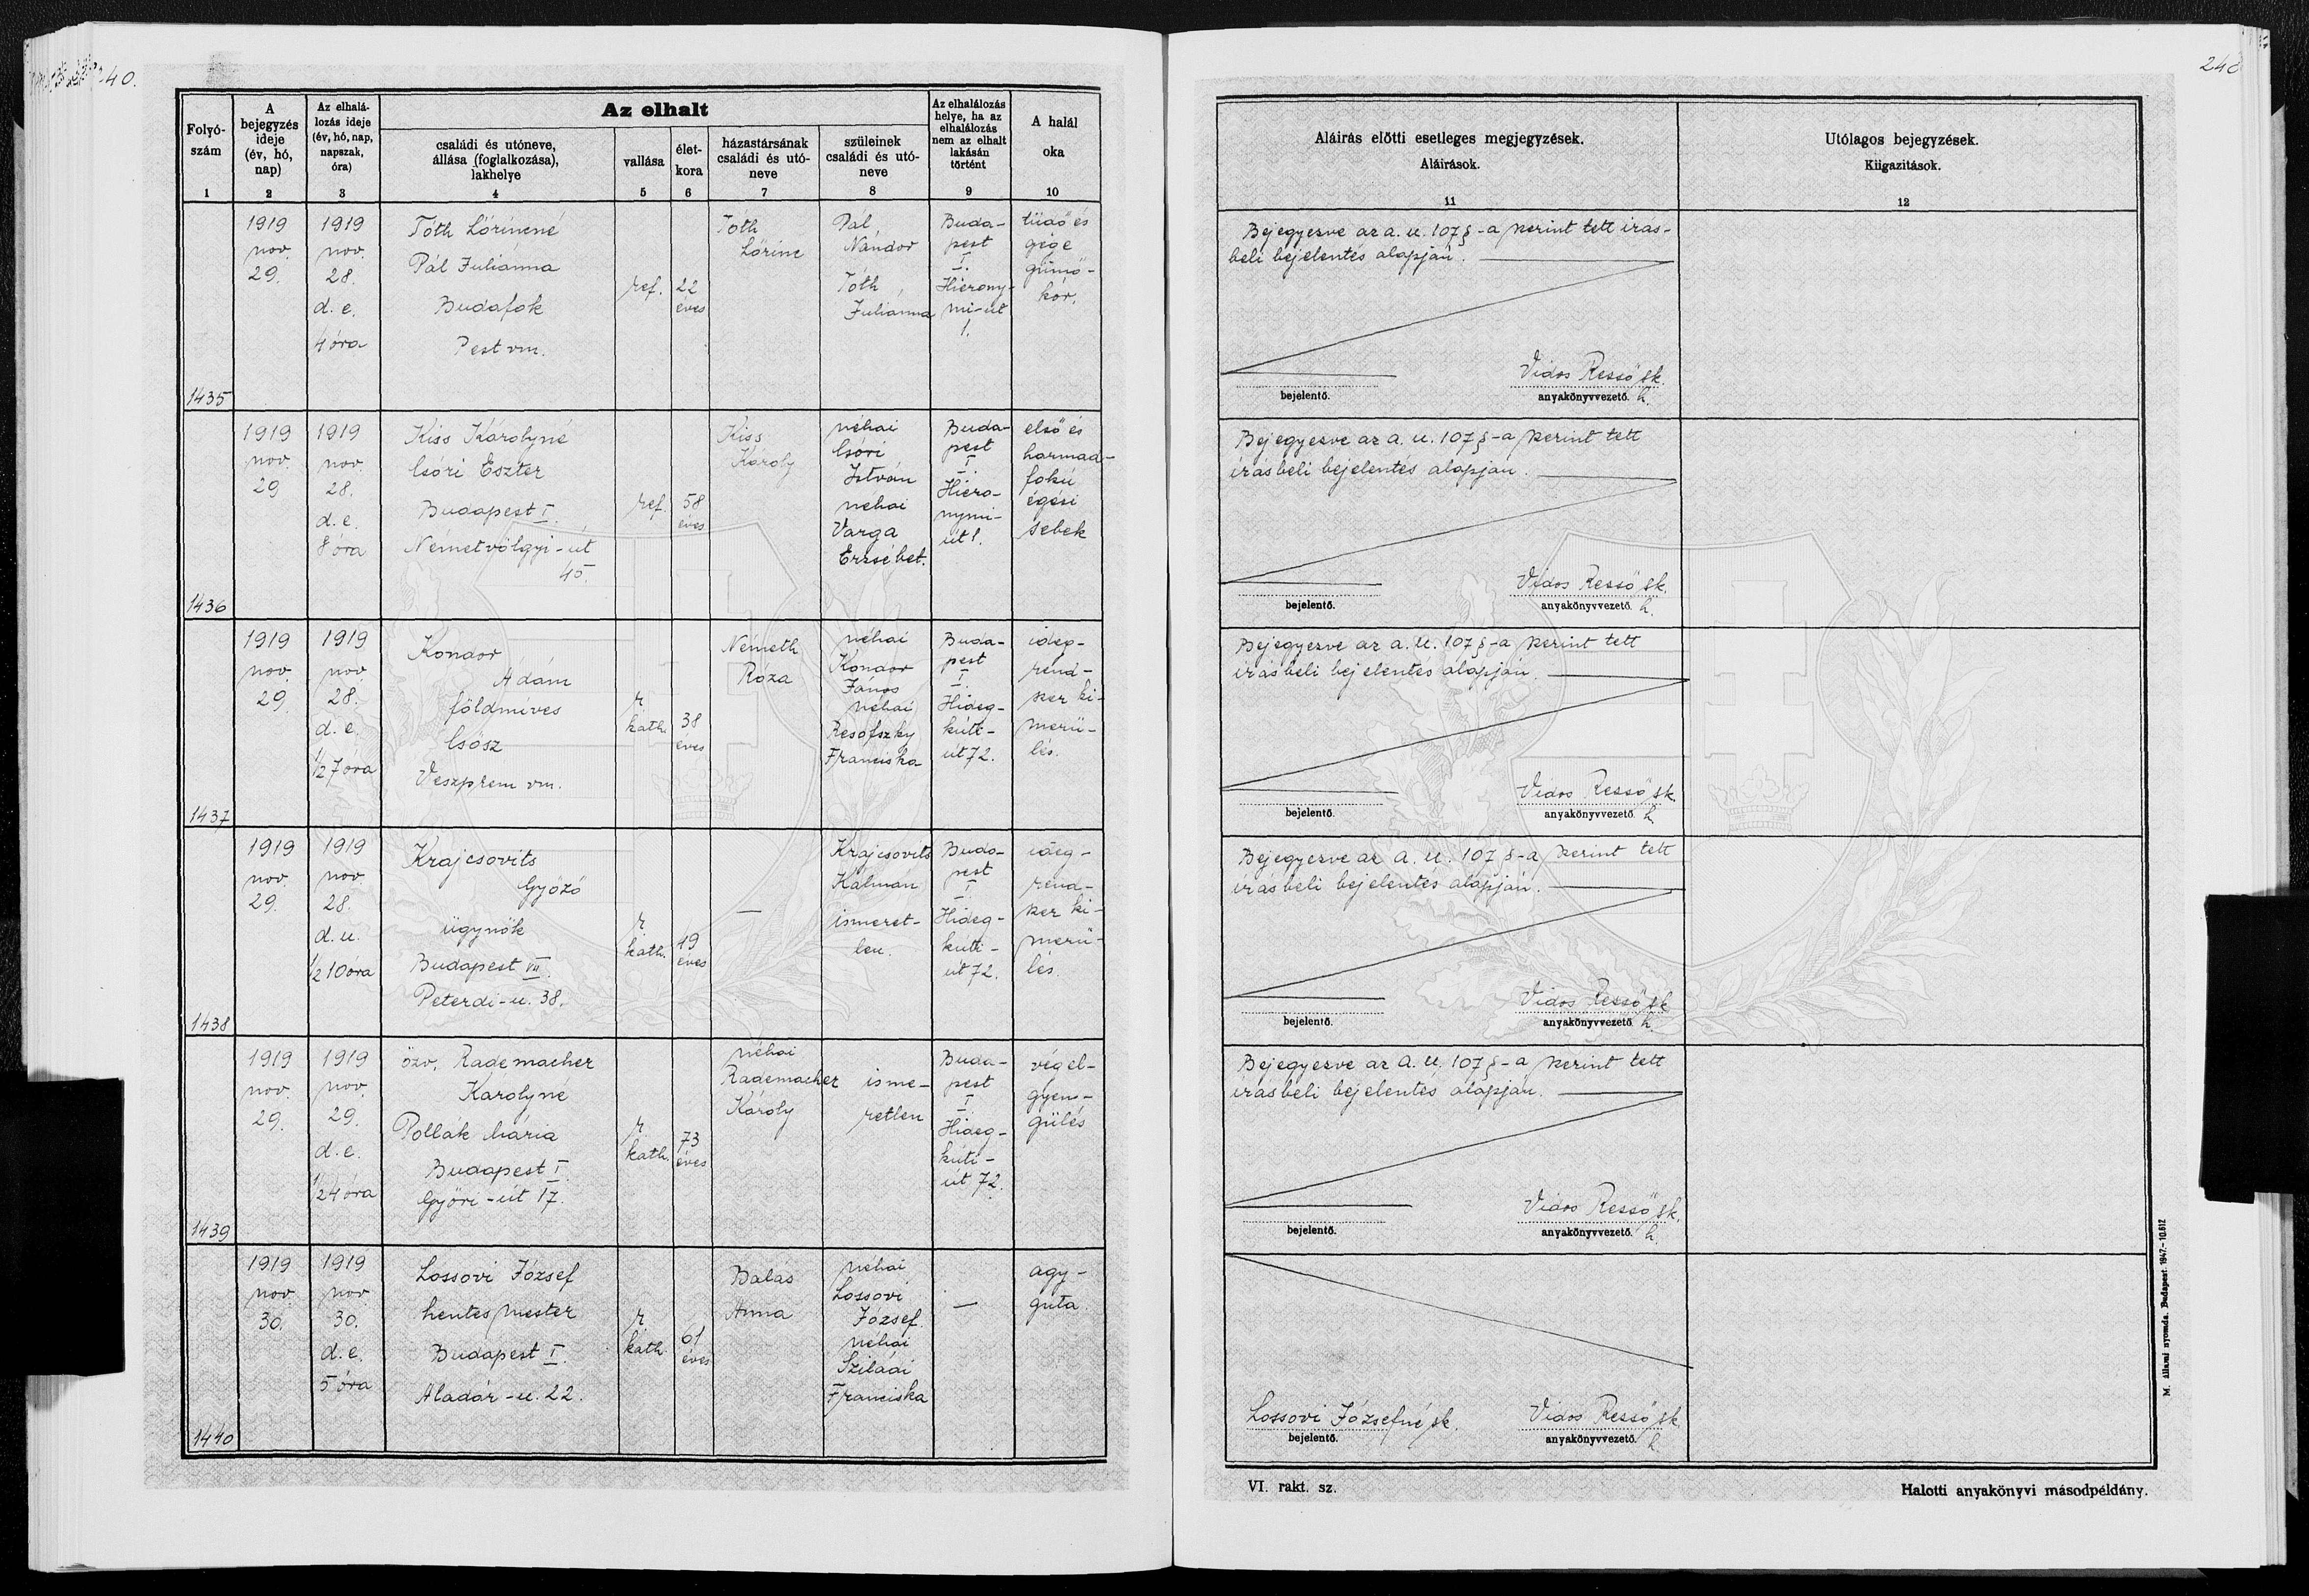 40.
Folyó-
szám
1
A
bejegyzés
ideje
(év, hó,
nap)
2
Az elhalá-
lozás ideje
(év, hó, nap,
napszak,
óra)
3
Az elhalt
családi és utóneve,
állása (foglalkozása),
lakhelye
4
vallása
5
élet-
kora
6
házastársának
családi és utó-
neve
7
szüleinek
családi és utó-
neve
8
Az elhalálozás
helye, ha az
elhalálozás
nem az elhalt
lakásán
történt
9
A halál
oka
10
1435
1919
nov.
29.
1919
nov.
28.
d. e.
4 óra
Tóth Lőrincné
Pál Julianna
Budafok
Pest vm.
ref.
22
éves
Tóth
Lőrinc
Pál
Nándor
Tóth
Julianna
Buda-
pest
I.
Hierony-
mi-út
1.
tüdő és
gége
gümő-
kór.
1436
1919
nov.
29
1919
nov.
28.
d. e.
8 óra
Kiss Károlyné
Csóri Eszter
Budapest I.
Németvölgyi-út
45.
ref.
58
éves
Kiss
Károly
néhai
Csóri
István
néhai
Varga
Erzsébet.
Buda-
pest
I.
Hiero-
nymi-
út 1.
első és
harmad-
fokú
égési
sebek
1437
1919
nov.
29.
1919
nov
28.
d. e.
1/2 7 óra
Kondor
Ádám
földmíves
Csősz
Veszprém vm.
r.
kath.
38
éves
Németh
Róza
néhai
Kondor
János
néhai
Resofszky
Franciska
Buda-
pest
I.
Hideg-
kúti-
út 72.
ideg-
rend-
szer ki-
merü-
lés.
1438
1919
nov.
29.
1919
nov
28.
d. u.
1/2 10 óra
Krajcsovits
Győző
ügynök
Budapest VII.
Péterdi-u. 38.
r.
kath.
49
éves
—
Krajcsovits
Kálmán
ismeret-
len.
Buda-
pest
I.
Hideg-
kuti-
út 72.
ideg-
rend-
szer ki-
merü-
lés.
1439
1919
nov.
29.
1919
nov.
29.
d. e.
1/2 4 óra
özv. Rademacher
Károlyné
Pollák Mária
Budapest I.
Győri-út 17.
r.
kath.
73
éves
néhai
Rademacher
Károly
isme-
retlen
Buda-
pest
I.
Hideg-
kúti-
út 72.
végel-
gyen-
gülés
1440
1919
nov.
30.
1919
nov.
30.
d. e.
5 óra
Lossovi József
hentes mester
Budapest I.
Aladár-u. 22.
r.
kath.
61
éves
Balás
Anna
néhai
Lossovi
József.
néhai
Sziládi
Franciska
—
agy-
guta.
Aláírás előtti esetleges megjegyzések.
Aláírások.
11
Utólagos bejegyzések.
Kiigazítások.
12
Bejegyezve az a. u. 107 §-a szerint tett írás-
beli bejelentés alapján.
Vidos Rezső sk.
bejelentő.
anyakönyvvezető. h.
Bejegyezve az a. u. 107 §-a szerint tett
írásbeli bejelentés alapján.
Vidos Rezső sk.
bejelentő.
anyakönyvvezető. h.
Bejegyezve az a. u. 107 §-a szerint tett
írásbeli bejelentés alapján.
Vidos Rezső sk.
bejelentő.
anyakönyvvezető. h.
Bejegyezve az a. u. 107 §-a szerint tett
írásbeli bejelentés alapján.
Vidos Rezső sk
bejelentő.
anyakönyvvezető. h.
Bejegyezve az a. u. 107 §-a szerint tett
írásbeli bejelentés alapján.
Vidos Rezső sk.
bejelentő.
anyakönyvvezető. h.
Lossovi Józsefné sk.
Vidos Rezső sk.
bejelentő.
anyakönyvvezető. h.
M. állami nyomda. Budapest. 1947.–10.512
VI. rakt. sz.
Halotti anyakönyvi másodpéldány.